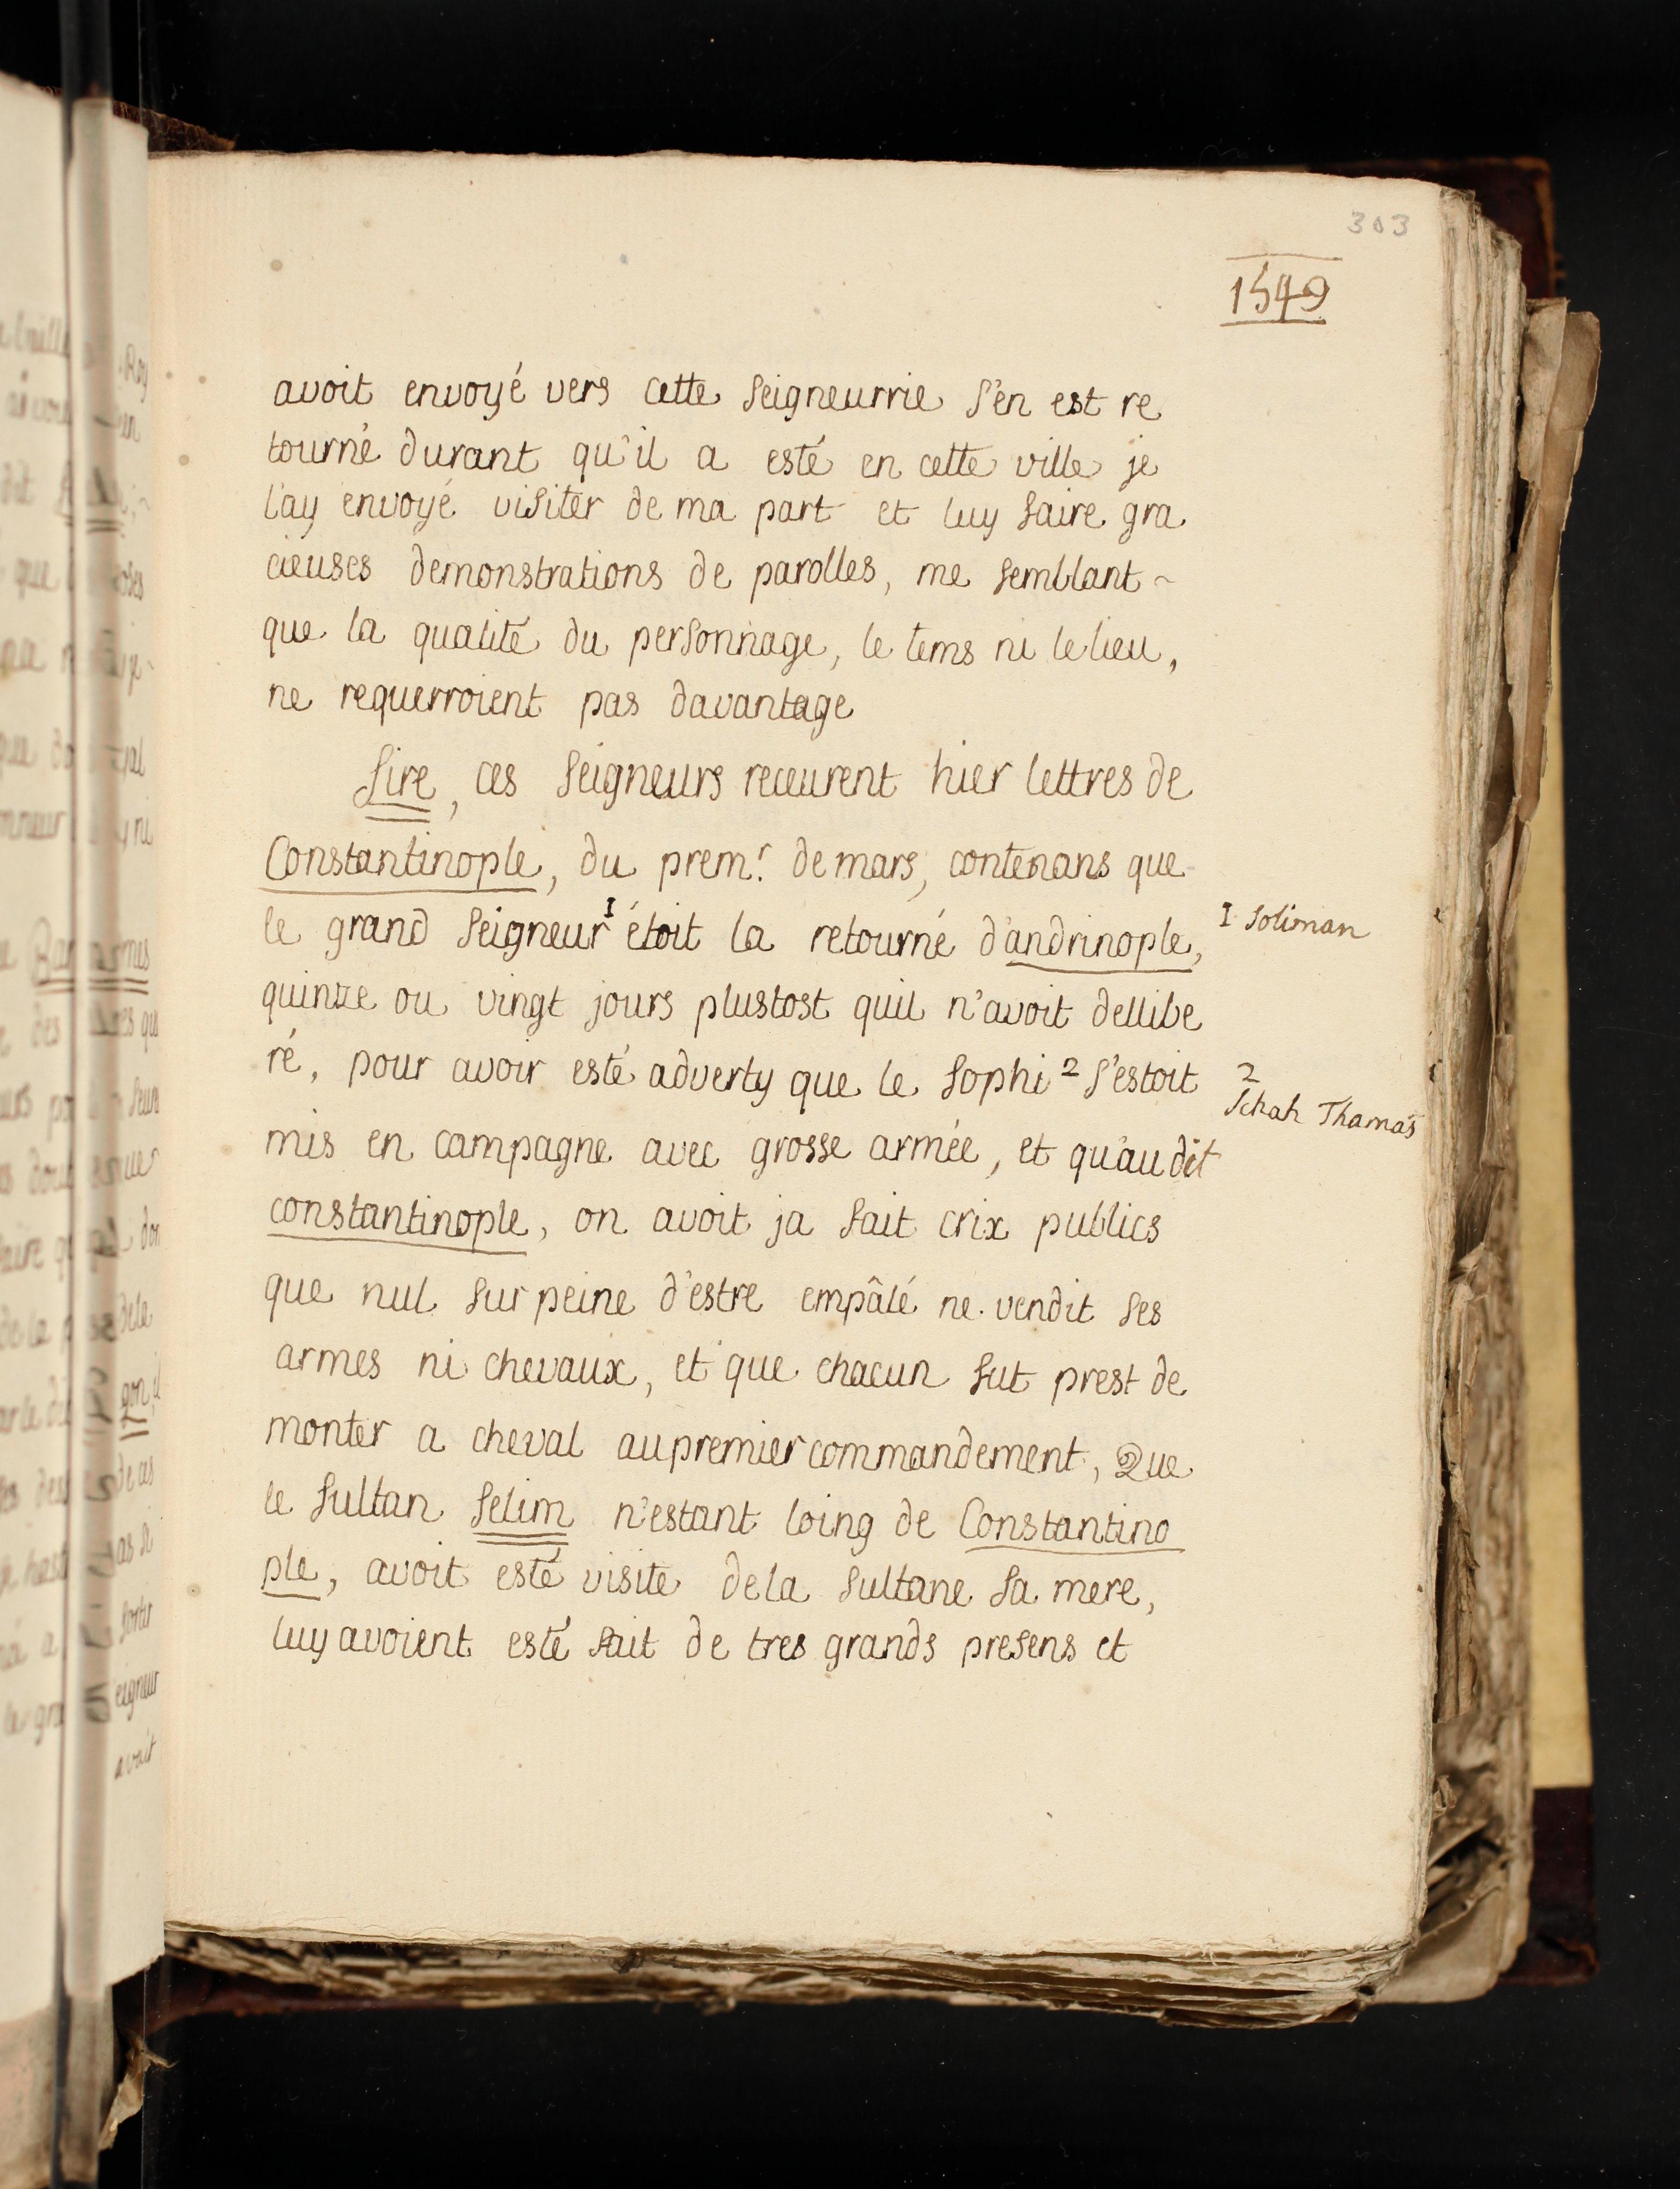 303
1549
avoit envoyé vers cette seigneurrie s'en est re
tourné durant qu'il a esté en cette ville je
l'ay envoyé visiter de ma part et luy faire gra
cieuses demonstrations de parolles, me semblant ~
que la qualité du personnage, le tems ni le lieu,
ne requerroient pas davantage
Sire, ces seigneurs receurent hier lettres de
Constantinople, du prem.r de mars, contenans que
le grand seigneur I étoit la retourné d'andrinople,
I soliman
quinze ou vingt jours plustost quil n'avoit dellibe
ré, pour avoir esté adverty que le sophi 2 s'estoit
2
Schah Thamas
mis en campagne avec grosse armée, et qu'au dit
constantinople, on avoit ja fait crix publics
que nul sur peine d'estre empâlé ne vendit ses
armes ni chevaux, et que chacun fut prest de
monter a cheval au premier commandement, Que
le sultan selim n'estant loing de Constantino
ple, avoit esté visite de la sultane sa mere,
luy avoient esté fait de tres grands presens et